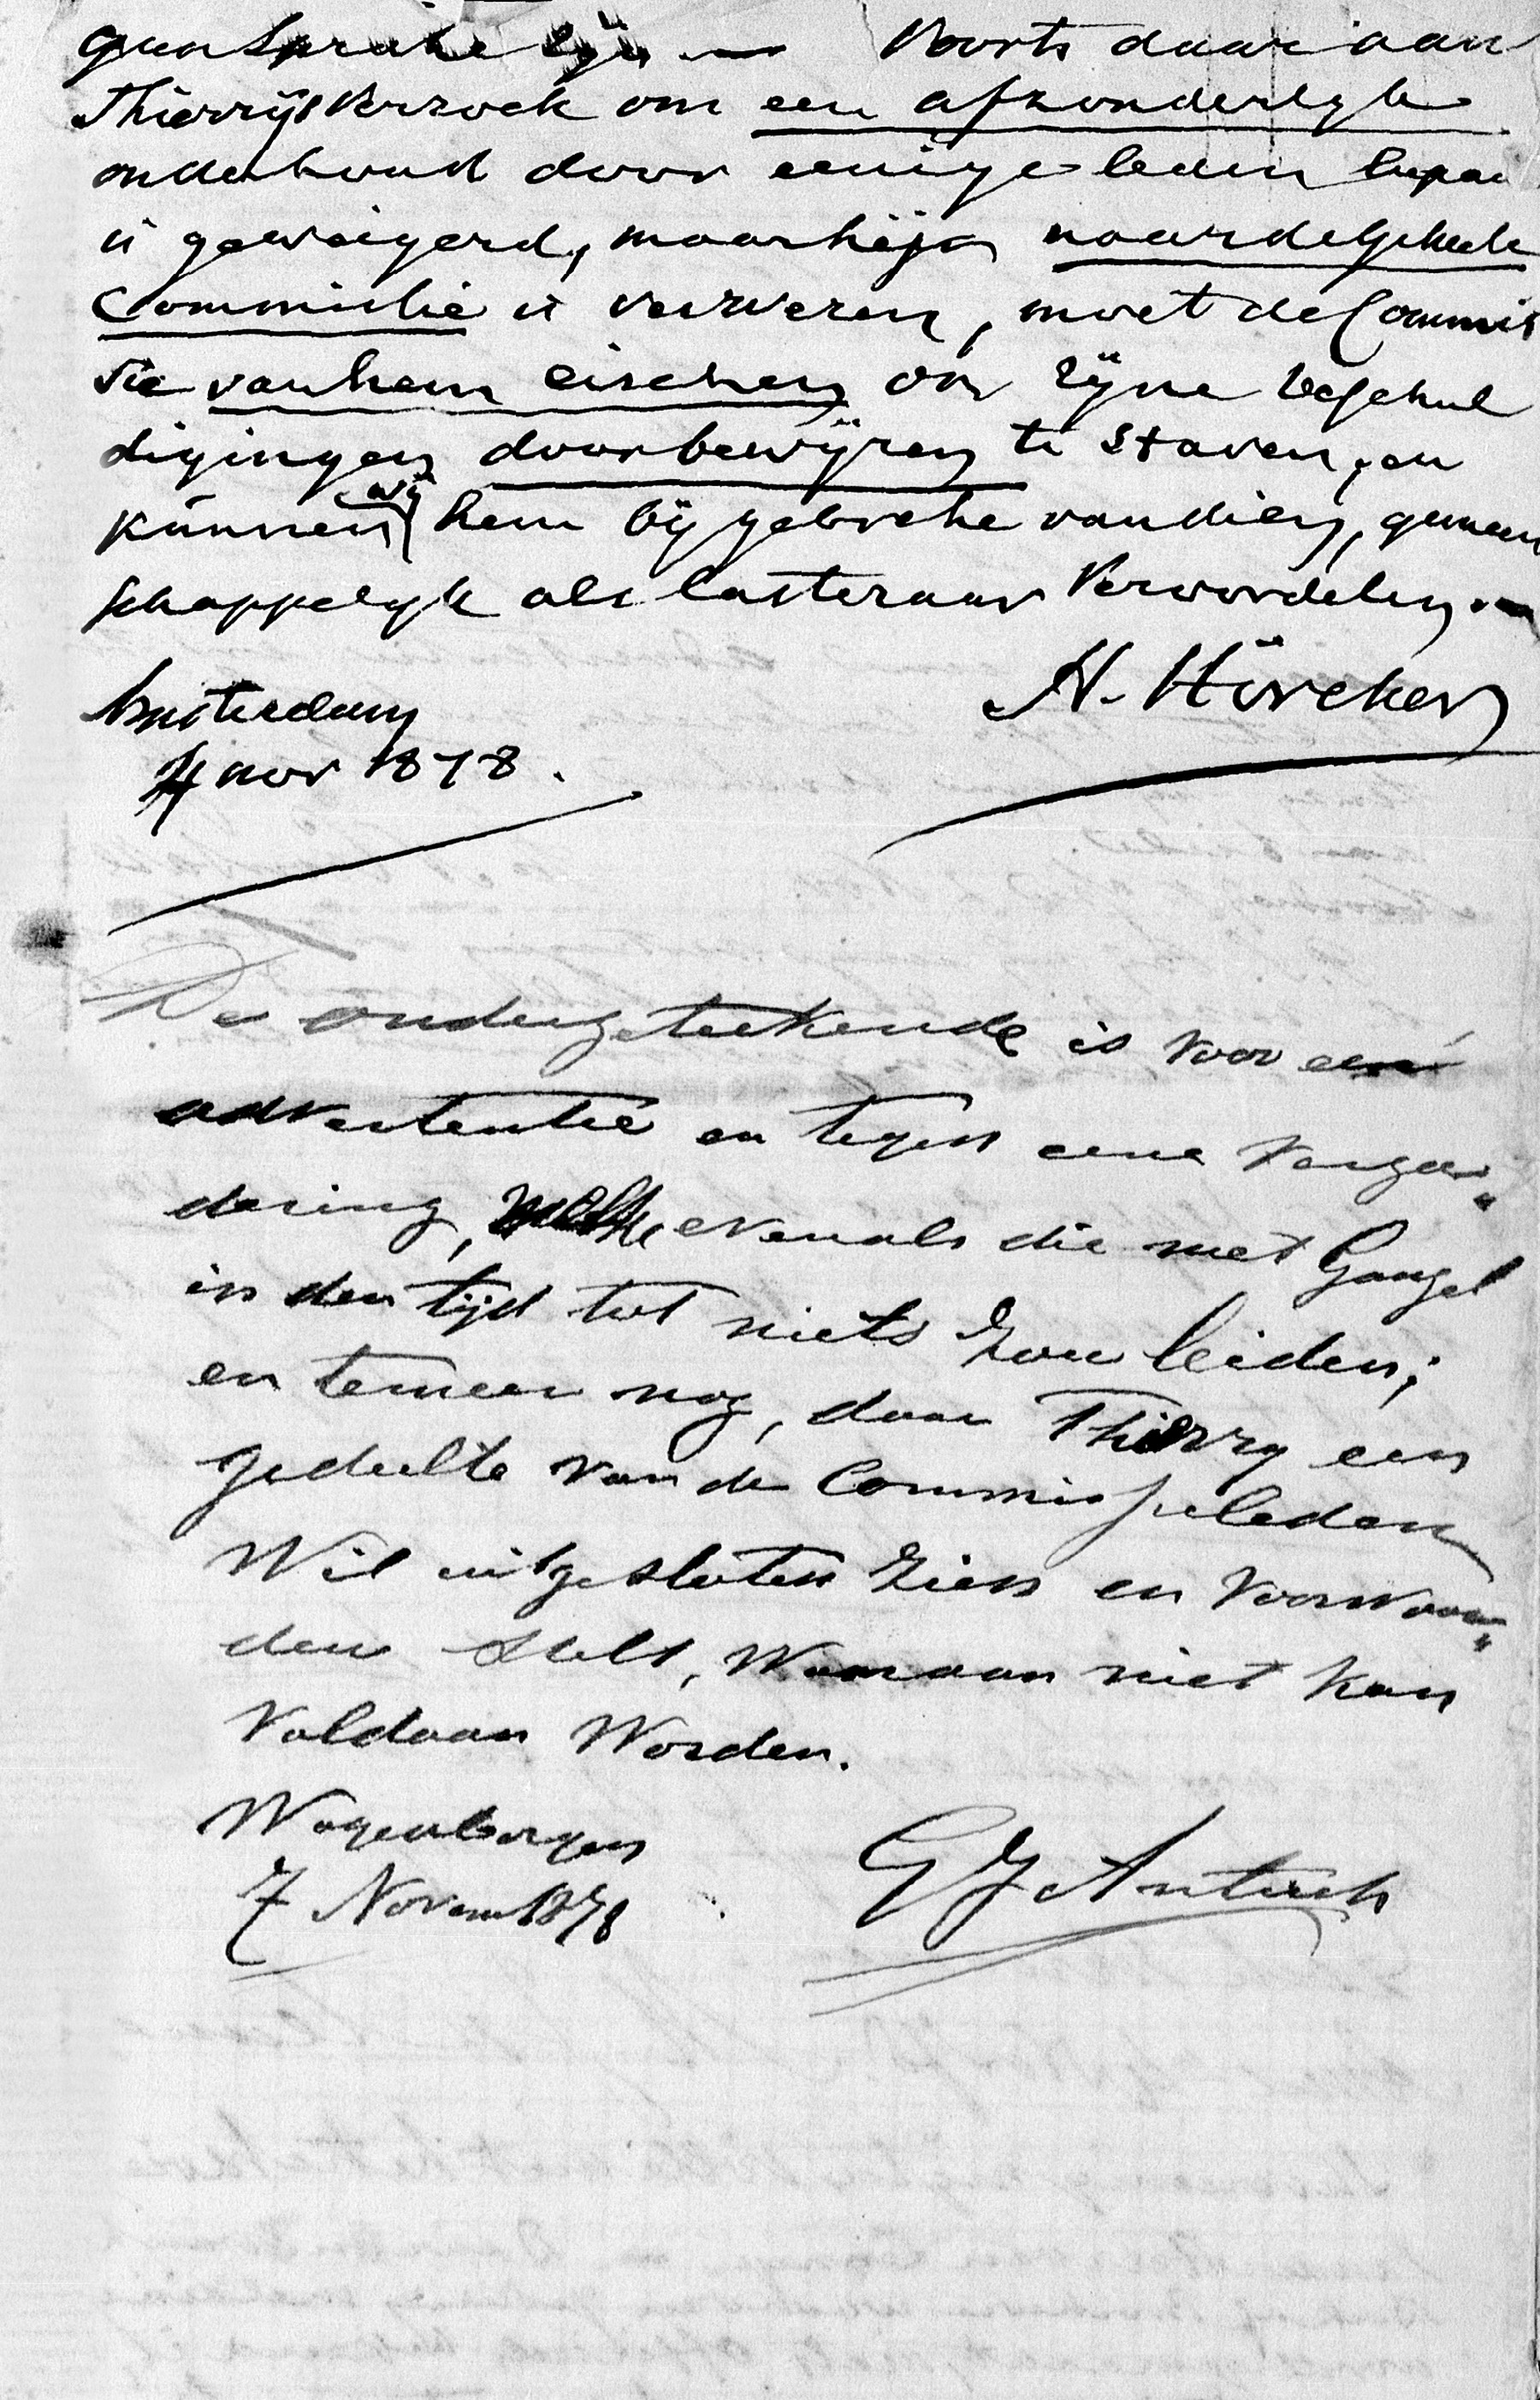 geen sprake zijn — Voorts daar aan
Thierrijs Verzoek om een afzonderlyk
onderhoud door eenige leden bepaa
is geweigerd, maar hij naar de geheele
Commissie is verwezen, moet de Commis
sie van hem eischen om zijne beschul
digingen door bewijzen te staven, en
kunnen wij hem bij gebreke van dien, gemeen
schappelyk als lasteraar Veroordelen. —
Amsterdam
4 nov 1878.
H. Höveker
De ondergeteekende is voor een
advertentie en tegen eene Verga„
dering, welke evenals die met Gangel
in den tijd tot niets zou leiden;
en temeer nog, daar Thierry een
gedeelte van de Commissieleden
Wil uitgesloten zien en Voorwaar„
den stelt, Waaraan niet kan
Voldaan Worden.
Wagenborgen
7 Novem 1878
G J